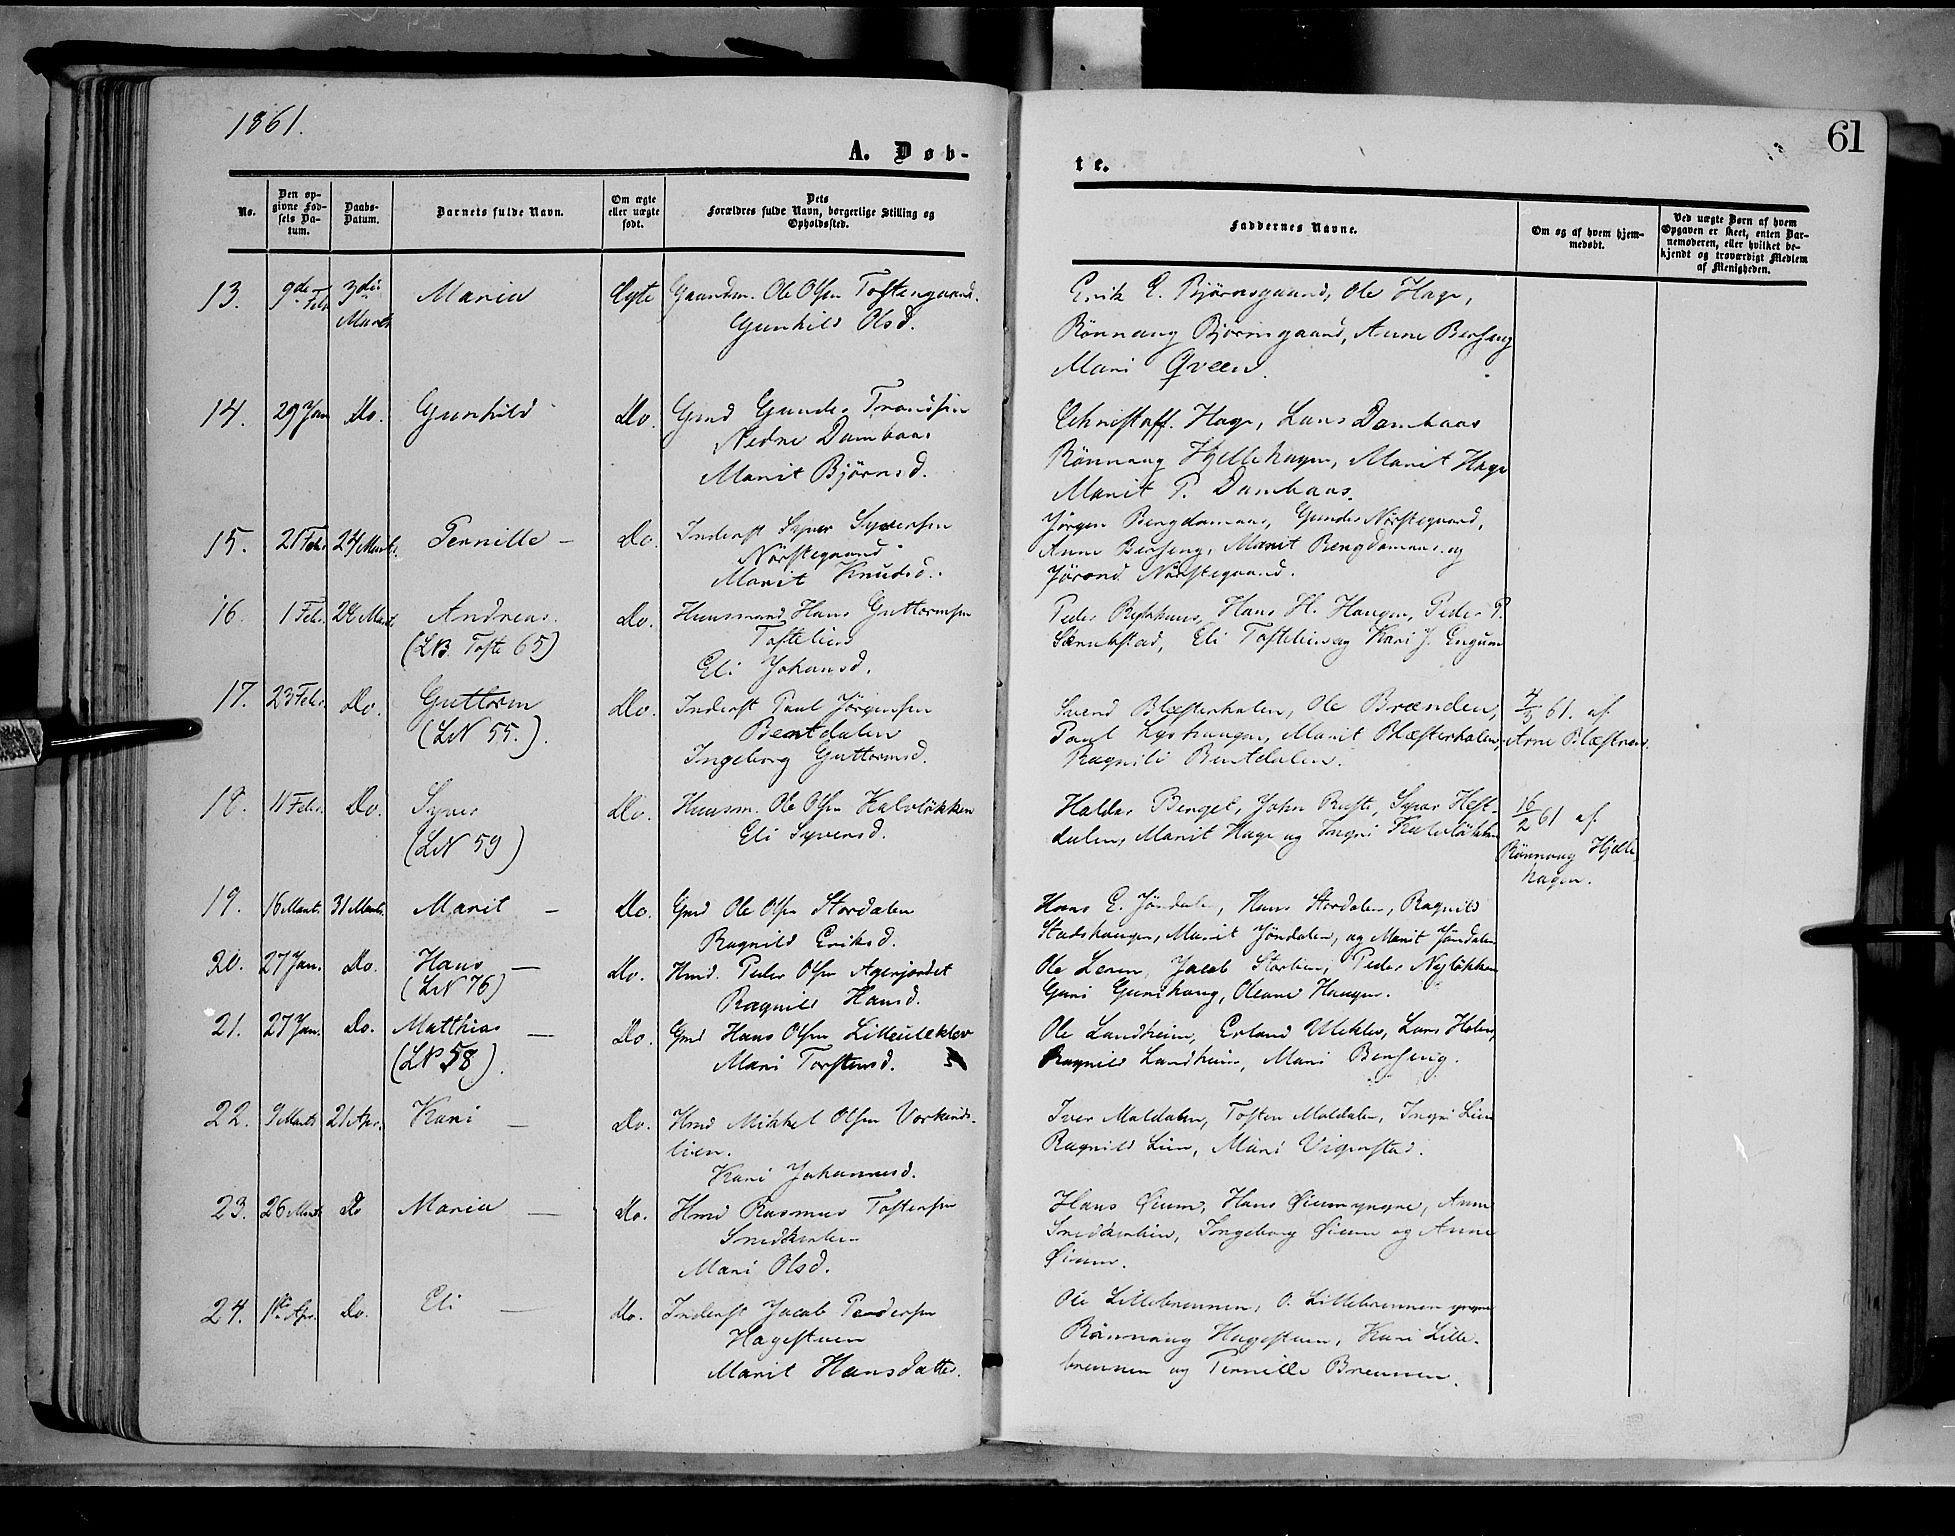 1861.
61
A. Døb-
te.
No.
Den op-
givne Fød-
sels Da-
tum.
Daabs-
Datum.
Barnets fulde Navn.
Om ægte
eller uægte
født.
Dets
Forældres fulde Navn, borgerlige Stilling og
Opholdssted.
Faddernes Navne.
Om og af hvem hjem-
medøbt.
Ved uægte Børn af hvem
Opgaven er skeet, enten Bar-
nemoderen, eller hvilket be-
kjendt og troværdigt Medlem
af Menigheden.
13. 9de Feb 3die Marts Maria Ægte Gaardm. Ole Olsen Toftesgaard.
Gunhild Olsd.
Erik E. Bjørnsgaard, Ole Hage,
Rønnaug Bjørnsgaard, Anne Berseng
Mari Qveen.
14. 29 Jan Do. Gunhild Do. Gmd Gunder Trondsen
Nedre Dombaas
Marit Bjørnsd.
Christoff. Hage, Lars Dombaas
Rønnaug Hjellehagen, Marit Hage
Marit P. Dombaas.
15. 21 Febr. 24 Marts. Pernille - Do. Inderst Syver Syversen
Nørstegaard
Marit Knudsd.
Jørgen Bergdamaas, Gunder Nørstegaard,
Anne Berseng, Marit Bergdamaas og
Jørond Nørstegaard.
16. 1 Febr. 24 Marts Andreas. Do. Huusmand Hans Guttormsen
(LN. Tofte 65) Toftelien
Eli Johansd.
Peder Hans H. Haugen, Peder P.
Eli Toftelien og Kari J. Engum
17. 23 Febr. Do. Guttorm Do. Inderst Paul Jørgensen
(LN 55.). Bentdalen
Ingeborg Guttormsd.
Svend Blæsterhalen, Ole Brænden, 4/3 61. af
Paul Lyshaugen, Marit Blæsterhalen, Arne
Ragnild Bentdalen.
18. 11 Febr. Do. Syver Do. Huusm. Ole Olsen Kalvløkken
(LN 59) Eli Syversd.
Haldor Berget, John Ruste, Syver Hest-
dalen, Marit Hage og Ingri Kalvløkken
16/2 61 af
Rønnaug Hjelle
hagen.
19. 16 Marts. 31 Marts. Marit - Do. Gmd Ole Olsen Stordalen
Ragnild Eriksd.
Hans E. Jøndalen, Hans Stordalen, Ragnild
Stadshaugen, Marit Jøndalen, og Marit Jøndalen
20. 27 Jan. Do. Hans - Do. Hmd. Peder Olsen Agerjordet
(LN 76) Ragnild Hansd.
Ole Leren, Jacob Storlien, Peder Nyløkken
Guri Oleane Haugen.
21. 27 Jan. Do. Matthias - Do. Gmd Hans Olsen Lilleuleklev
(LN 58). Mari Torstensd.
Ole Landheim, Erland Uleklev, Lars Holen,
Ragnild Landheim, Mari Berseng.
22. 9 Marts 21 Apr. Kari - Do. Hmd Mikkel Olsen Vorkinds-
lien.
Kari Johannesd.
Iver Maldalen, Tosten Maldalen, Ingri Lien
Ragnild Lien, Mari Vigenstad.
23. 26 Marts Do Maria - Do. Hmd Rasmus Tostensen
Mari Olsd.
Hans Øium, Hans Øium yngre, Anne
Ingeborg Øium og Anne
Øium.
24. 1ste Apr. Do. Eli - Do. Inderst Jacob Pedersen
Hagestuen
Marit Hansdatter.
Ole Lillebrennen, O. Lillebrennen yngre
Rønnaug Hagestuen, Kari Lille-
brennen og Pernille Brennen.